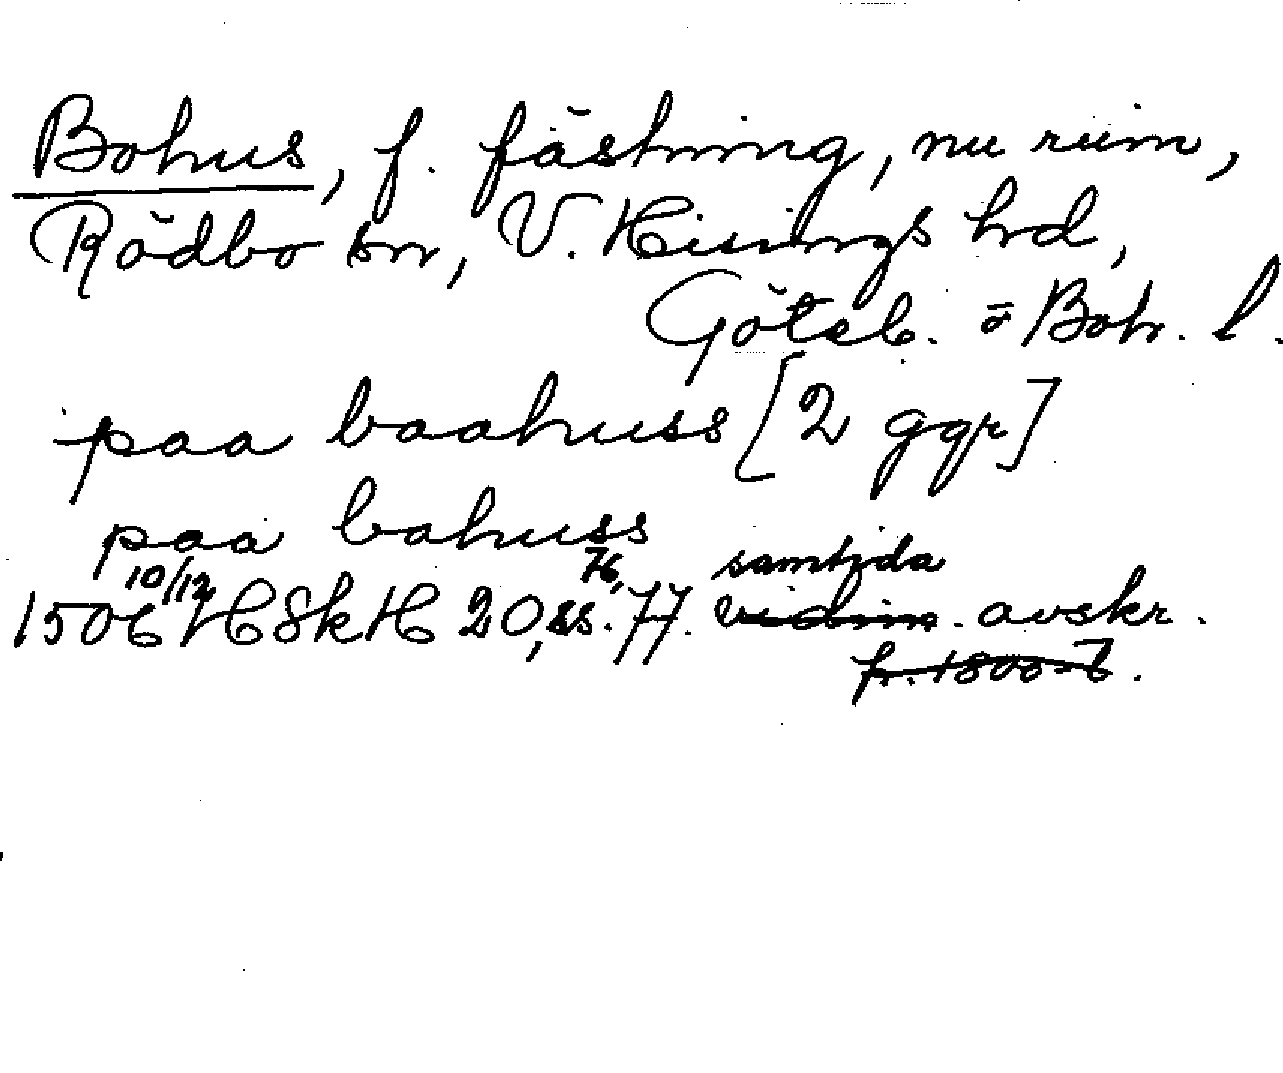 Bohus, f. fästning, nu ruin,
Rödbo sn, V. Hisings hd,
Göteb. o Boh. l.
paa baahuss [2 ggr]
paa bahuss
1506 10/12 HSkH 20, ss. 76, 77. samtida vidim. avskr.
fr. 1800-t.